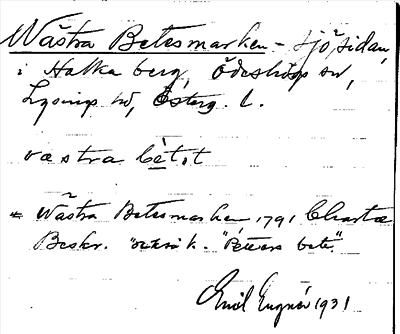 Wästra Betesmarken - sjösidan,
i Halkaberg, Ödeshögs sn,
Lysings hd, Österg. l.
västra bètət
Wästra Betesmarken 1791 Charta
Beskr. "Peters bete".
Emil Lugnér 1931